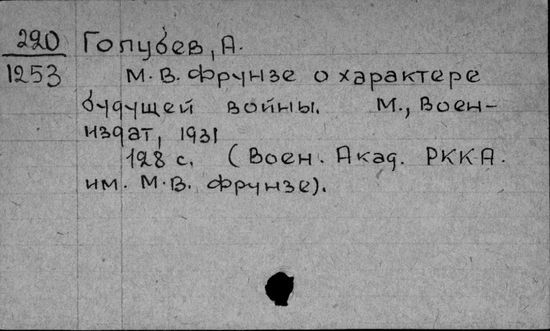 220 Голубев, А.
1253 М.В. Фрунзе о характере
будущей войны. М., Воен-
издат, 1931
128 с. (Воен. Акад. РККА.
им. М.В. Фрунзе).